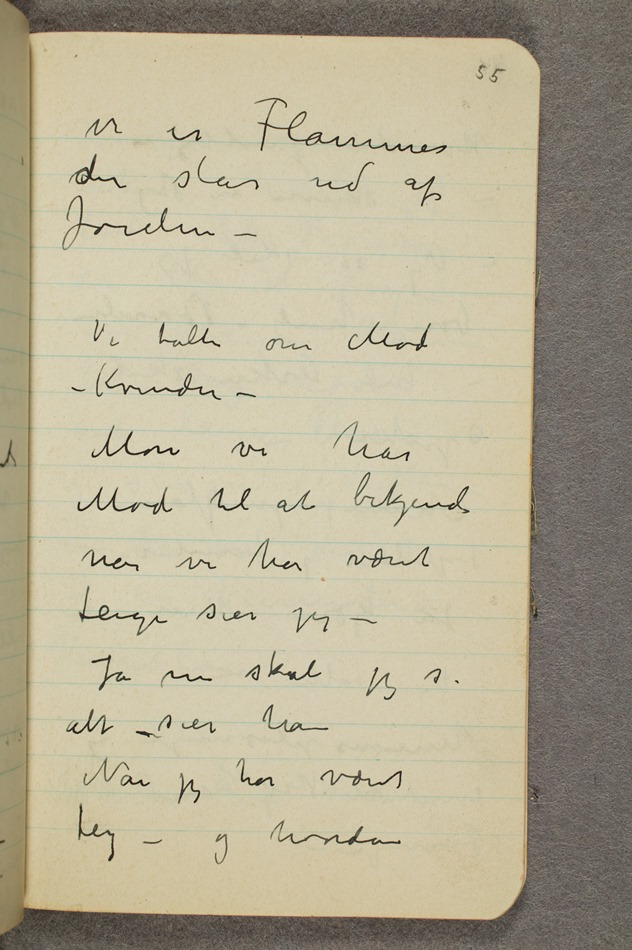 55
vi er Flammer
der slår ud af
Jorden –
Vi talte om Mod
– Kvinder –
Mon vi har
Mod til at bekjende
når vi har været
feige sier jeg –
Ja nu skal jeg s.
alt – sier han
Når jeg har været
feig – og hvordan